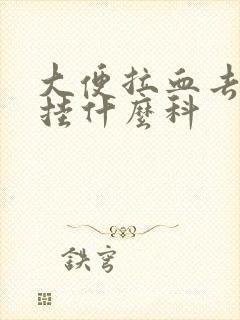 大便拉血去
挂什麼科
鉄穹